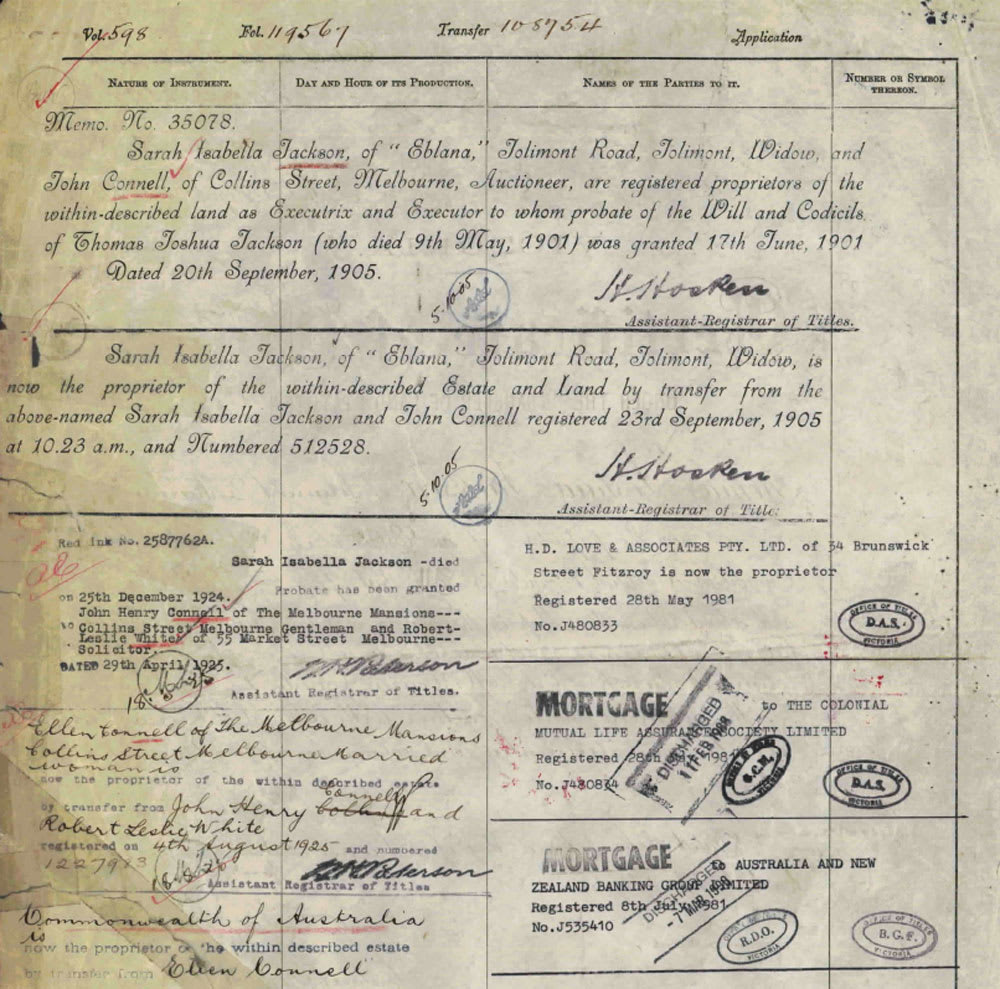 Vol. 598 Fol. 119567 Transfer 108754 Application
NATURE OF INSTRUMENT. DAY AND HOUR OF ITS PRODUCTION. NAMES OF THE PARTIES TO IT. NUMBER OR SYMBOL THEREON.
Memo. No. 35078.
Sarah Isabella Jackson, of "Eblana," Jolimont Road, Jolimont, Widow, and
John Connell, of Collins Street, Melbourne, Auctioneer, are registered proprietors of the
within-described land as Executrix and Executor to whom probate of the Will and Codicils
of Thomas Joshua Jackson (who died 9th May, 1901) was granted 17th June, 1901
Dated 20th September, 1905.
5.10.05
H. Hosken
Assistant-Registrar of Titles.
Sarah Isabella Jackson, of "Eblana," Jolimont Road, Jolimont, Widow, is
now the proprietor of the within-described Estate and Land by transfer from the
above-named Sarah Isabella Jackson and John Connell registered 23rd September, 1905
at 10.23 a.m., and Numbered 512528.
5.10.05
H. Hosken
Assistant-Registrar of Title
Red ink No. 2587762A.
Sarah Isabella Jackson -died
Probate has been granted
on 25th December 1924.
John Henry Connell of The Melbourne Mansions---
to Collins Street Melbourne Gentleman and Robert-
Leslie White of 55 Market Street Melbourne---
Solicitor.
DATED 29th April 1925.
Assistant Registrar of Titles.
Ellen Connell of The Melbourne Mansions
Collins Street Melbourne Married
woman is
now the proprietor of the within described estate
Connell
by transfer from John Henry and
Robert Leslie White
registered on 4th August 1925 and numbered
1227983
18.8.25
Assistant Registrar of Titles
Commonwealth of Australia
is
now the proprietor of the within described estate
by transfer from Ellen Connell
H.D. LOVE & ASSOCIATES PTY. LTD. of 34 Brunswick
Street Fitzroy is now the proprietor
Registered 28th May 1981
No.J480833
OFFICE OF TITLES
D.A.S.
VICTORIA
MORTGAGE to THE COLONIAL
MUTUAL LIFE ASSURANCE SOCIETY LIMITED
Registered 28th May 1981
No.J480834
DISCHARGED
OFFICE OF TITLES
D.A.S.
VICTORIA
MORTGAGE to AUSTRALIA AND NEW
ZEALAND BANKING GROUP LIMITED
Registered 8th July 1981
No.J535410
DISCHARGED
R.D.O.
VICTORIA
OFFICE OF TITLES
B.G.F.
VICTORIA